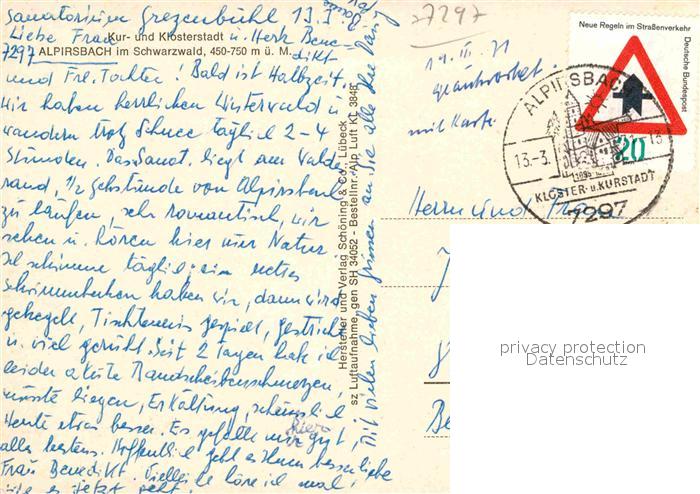 Sanatorium Grezenbühl 13.3.
Liebe Frau u. Herr Bene-
Kur- und Klosterstadt
7297 ALPIRSBACH im Schwarzwald, 450-750 m ü. M.
dikt
und Frl. Tochter! Bald ist Halbzeit.
Wir haben herrlichen Winterwald u.
wandern trotz Schnee täglich 2-4
Stunden. Das Sanat. liegt am Wald
rand, 1/2 Gehstunde von Alpirsbach
zu laufen, sehr romantisch, wir
sehen u. hören hier nur Natur.
schwimme täglich, ein nettes
Schwimmbecken haben wir, dann wird
gekegelt, Tischtennis gespielt, gestrickt
u. viel geruht. Seit 2 Tagen hab ich
leider akute Bandscheibenschmerzen,
musste liegen, Erkältung, scheusslich!
Heute etwas besser. Es gefällt mir gut,
hier
alles bestens. Hoffentlich geht es Ihnen besser liebe
Frau Benedikt. Vielleicht höre ich mal,
wie es jetzt geht.
Mit vielen lieben Grüssen an Sie alle Ihre
Hersteller und Verlag Schöning & Co., Lübeck
sz Luftaufnahme, gen SH 34052 - Bestellnr. Alp Luft KL 3848
7297
19. III. 71
geantwortet.
mit Karte
Neue Regeln im Straßenverkehr
Deutsche Bundespost
20
ALPIRSBACH
13.-3.
13
1095
KLOSTER- u. KURSTADT
7297
Herrn und Frau
privacy protection
Datenschutz